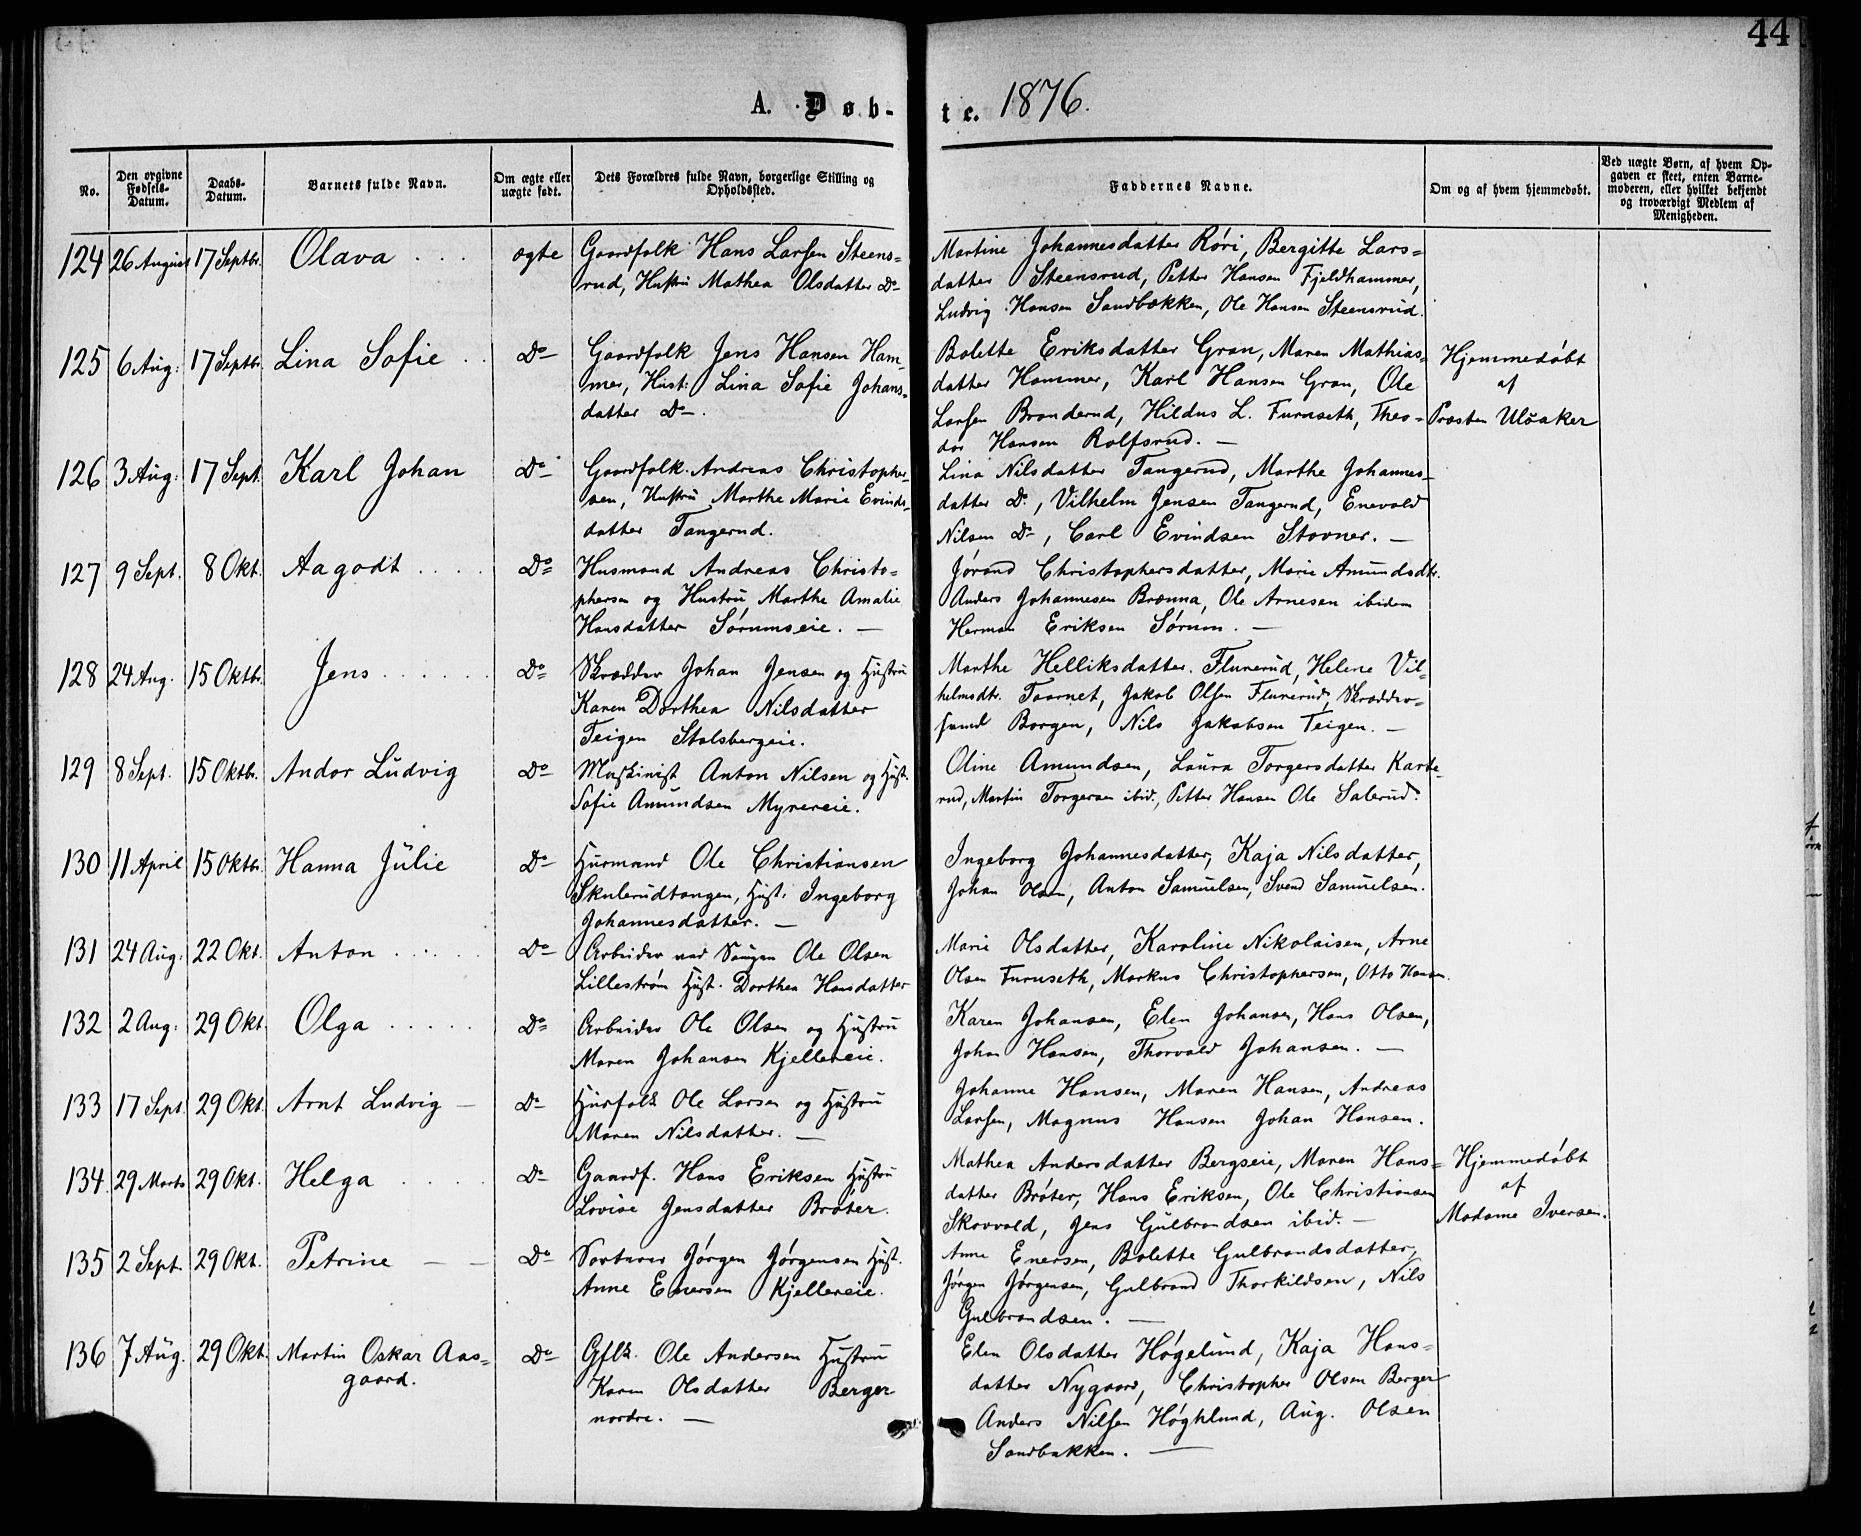 44
A. Døb-
te. 1876.
No.
Den opgivne Fødsels-Datum.
Daabs-Datum.
Barnets fulde Navn.
Om ægte eller uægte født.
Dets Forældres fulde Navn, borgerlige Stilling og Opholdssted.
Faddernes Navne.
Om og af hvem hjemmedøbt.
Ved uægte Børn, af hvem Opgaven er skeet, enten Barnemoderen, eller hvilket bekjendt og troværdigt Medlem af Menigheden.
124 26 August 17 Septbr. Olava ... ægte
Gaardfolk Hans Larsen Steens-
rud, Hustru Mathea Olsdatter Do
Martine Johannesdatter Røri, Bergitte Lars-
datter Steensrud, Petter Hansen Fjeldhammer,
Ludvig Hansen Sandbækken, Ole Hansen Steensrud.
125 6 Aug: 17 Septbr. Lina Sofie .. Do
Gaardfolk Jens Hansen Ham-
mer, Hust: Lina Sofie Johans-
datter Do.
Bolette Eriksdatter Gran, Maren Mathias-
datter Hammer, Karl Hansen Gran, Ole
Larsen Branderud, Hildus L. Furuseth, Theo-
dor Hansen Rolfsrud. —
Hjemmedøbt
af
Præsten Ulsaker
126 3 Aug: 17 Sept. Karl Johan Do
Gaardfolk Andreas Christopher-
sen, Hustru Marthe Marie Evinds-
datter Tangerud.
Lina Nilsdatter Tangerud, Marthe Johannes-
datter Do, Vilhelm Jensen Tangerud, Enevold
Nilsen Do, Carl Evindsen Stovner. —
127 9 Sept. 8 Okt. Aagodt .... Do
Husmand Andreas Christo-
phersen og Hustru Marthe Amalie
Hansdatter Sørumseie. —
Jørand Christophersdatter, Marie Amundsdtr.
Anders Johannesen Brænna, Ole Arnesen ibidem
Herman Eriksen Sørum. —
128 24 Aug. 15 Oktbr. Jens ...... Do
Skrædder Johan Jensen og Hustru
Karen Dorthea Nilsdatter
Teigen Stalsbergeie.
Marthe Helliksdatter Flunerud, Helene Vil-
helmsdtr. Taarnet, Jakob Olsen Flunerud, Skrædder-
svend Borgen, Nils Jakobsen Teigen. —
129 8 Sept. 15 Oktbr. Andor Ludvig Do
Maskinist Anton Nilsen og Hust.
Sofie Amundsen Myrereie.
Oline Amundsen, Laura Torgersdatter Karte-
rud, Martin Torgersen ibid., Petter Hansen Ole Salerud.
130 11 April 15 Oktbr. Hanna Julie Do
Husmand Ole Christiansen
Skulerudtangen, Hust. Ingeborg
Johannesdatter. —
Ingeborg Johannesdatter, Kaja Nilsdatter,
Johan Olsen, Anton Samuelsen, Svend Samuelsen.
131 24 Aug: 22 Okt. Anton ..... Do
Arbeider ved Saugen Ole Olsen
Lillestrøm Hust. Dorthea Hansdatter
Marie Olsdatter, Karoline Nikolaisen, Arne
Olsen Furuseth, Markus Christophersen, Otto Hansen.
132 2 Aug: 29 Okt. Olga ..... Do
Arbeider Ole Olsen og Hustru
Maren Johansen Kjellereie.
Karen Johansen, Elen Johansen, Hans Olsen,
Johan Hansen, Thorvald Johansen. —
133 17 Sept. 29 Okt. Arnt Ludvig — Do
Husfolk Ole Larsen og Hustru
Maren Nilsdatter. —
Johanne Hansen, Maren Hansen, Andreas
Larsen, Magnus Hansen Johan Hansen.
134 29 Marts 29 Okt. Helga .... Do
Gaardf. Hans Eriksen Hustru
Lovise Jensdatter Brøter.
Mathea Andersdatter Bergseie, Maren Hans-
datter Brøter, Hans Eriksen, Ole Christiansen
Skovvold, Jens Gulbrandsen ibid. —
Hjemmedøbt
af
Madame Iversen.
135 2 Sept. 29 Okt. Petrine — — Do
Jørgen Jørgensen Hust.
Anne Enersen Kjellereie.
Anne Enersen, Bolette Gulbrandsdatter,
Jørgen Jørgensen, Gulbrand Thorkildsen, Nils
Gulbrandsen. —
136 7 Aug. 29 Okt. Martin Oskar Aas-
gaard. Do
Gflk. Ole Andersen Hustru
Karen Olsdatter Berger
nordre. —
Elen Olsdatter Høgelund, Kaja Hans-
datter Nygaard, Christopher Olsen Berger
Anders Nilsen Høghlund, Aug. Olsen
Sandbakken. —